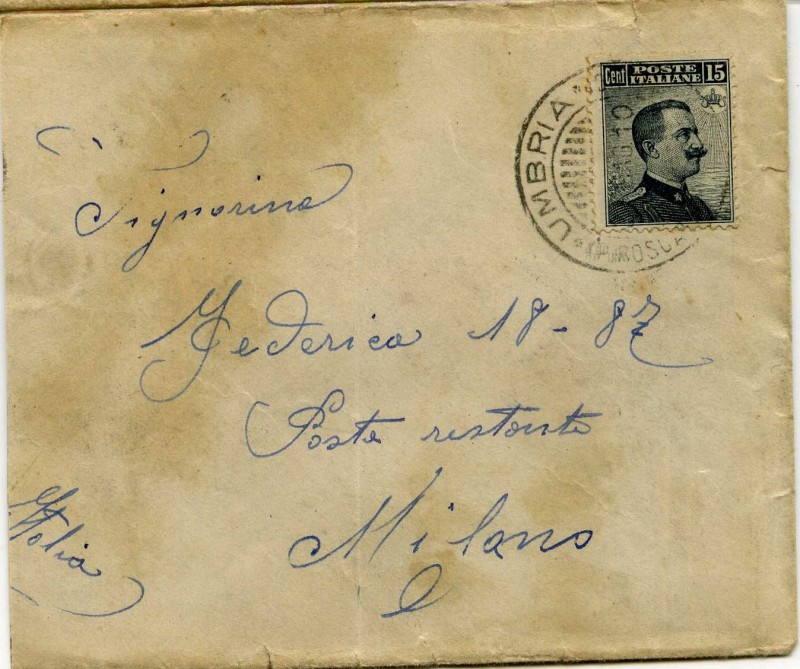 Cent POSTE ITALIANE 15
UMBRIA
10
Signorina
Federica 18-87
Poste restante
Milano
Italia